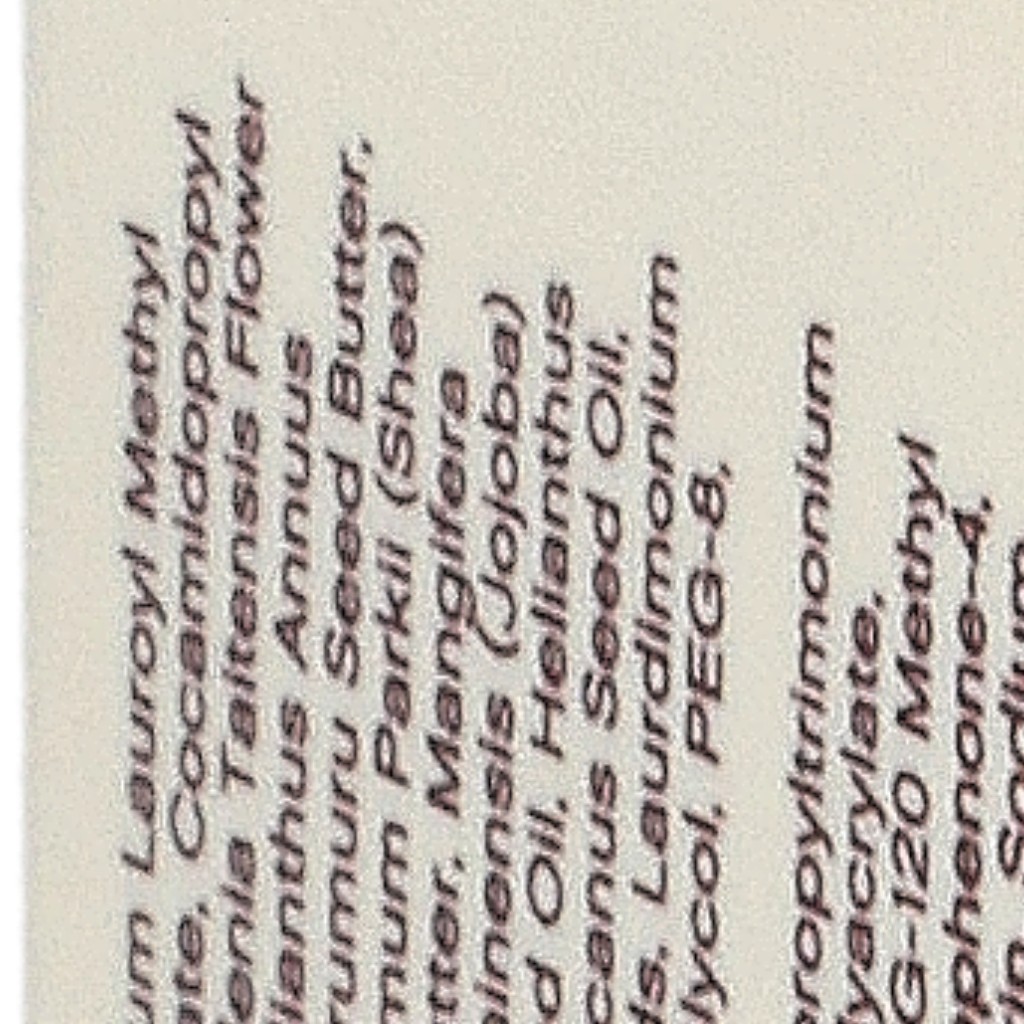 um Lauroyl Methyl
ate, Cocamidopropyl
enia Taitensis Flower
lianthus Annuus
rumuru Seed Butter,
mum Parkii (Shea)
tter, Mangifera
inensis (Jojoba)
d Oil, Helianthus
canus Seed Oil,
ds, Laurdimonium
lycol, PEG-8,
ropyltrimonium
yacrylate,
G-120 Methyl
phenone-4,
Sodium